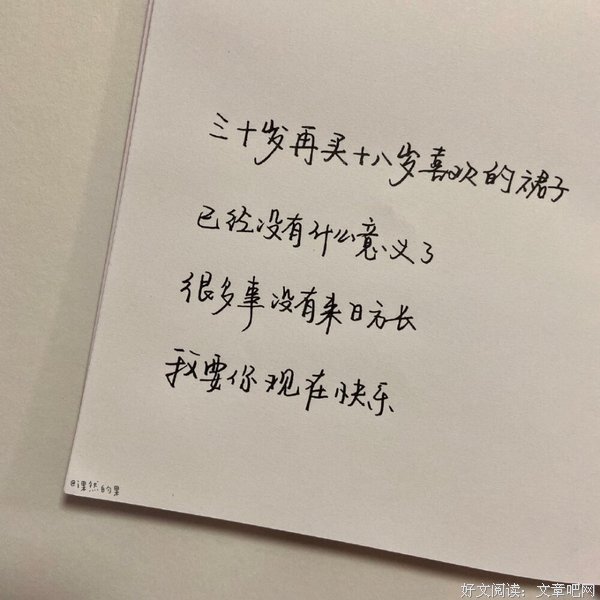 三十岁再买十八岁喜欢的裙子
已经没有什么意义了
很多事没有来日方长
我要你现在快乐
@课然的果
好文阅读：文章吧网